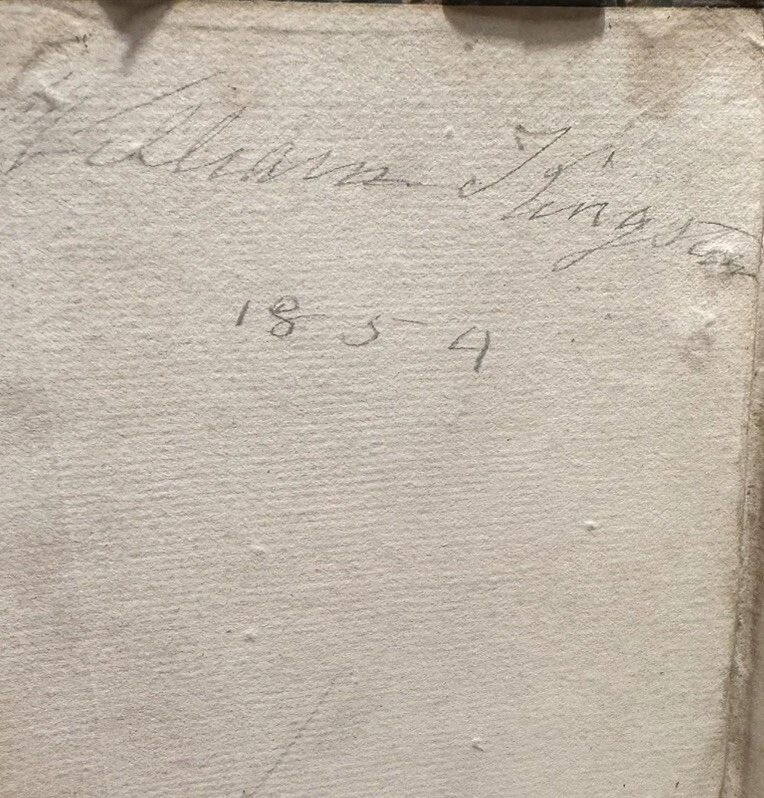 William Kingston
1854